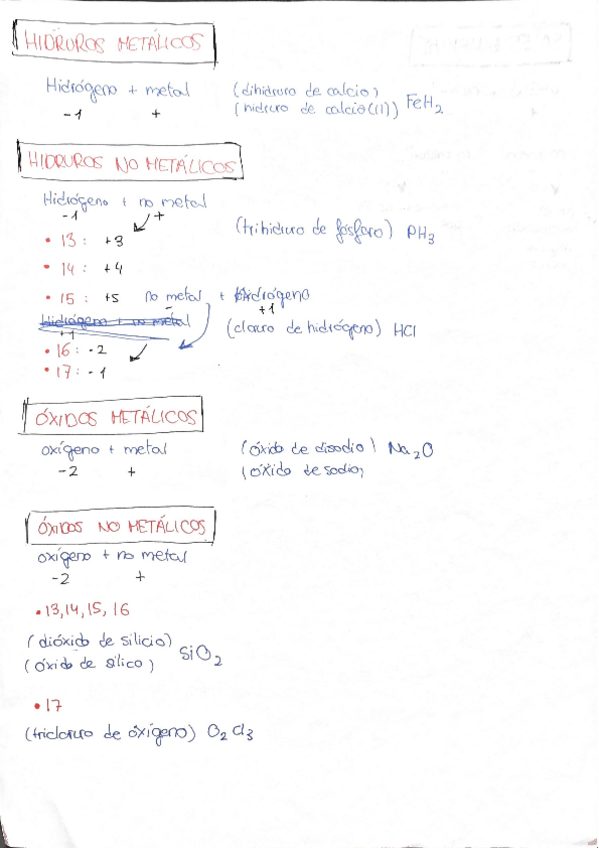 HIDRUROS METÁLICOS
Hidrógeno + metal (dihidruro de calcio)
-1 + (hidruro de calcio (II)) FeH2
HIDRUROS NO METÁLICOS
Hidrógeno + no metal
-1 +
• 13: +3 (trihidruro de fósforo) PH3
• 14: +4
• 15: +5 no metal + hidrógeno
- +1
Hidrógeno + no metal (cloruro de hidrógeno) HCl
+1
• 16: -2
• 17: -1
ÓXIDOS METÁLICOS
oxígeno + metal (óxido de disodio) Na2O
-2 + (óxido de sodio)
ÓXIDOS NO METÁLICOS
oxígeno + no metal
-2 +
• 13, 14, 15, 16
(dióxido de silicio) SiO2
(óxido de silico)
• 17
(tricloruro de oxígeno) O2Cl3